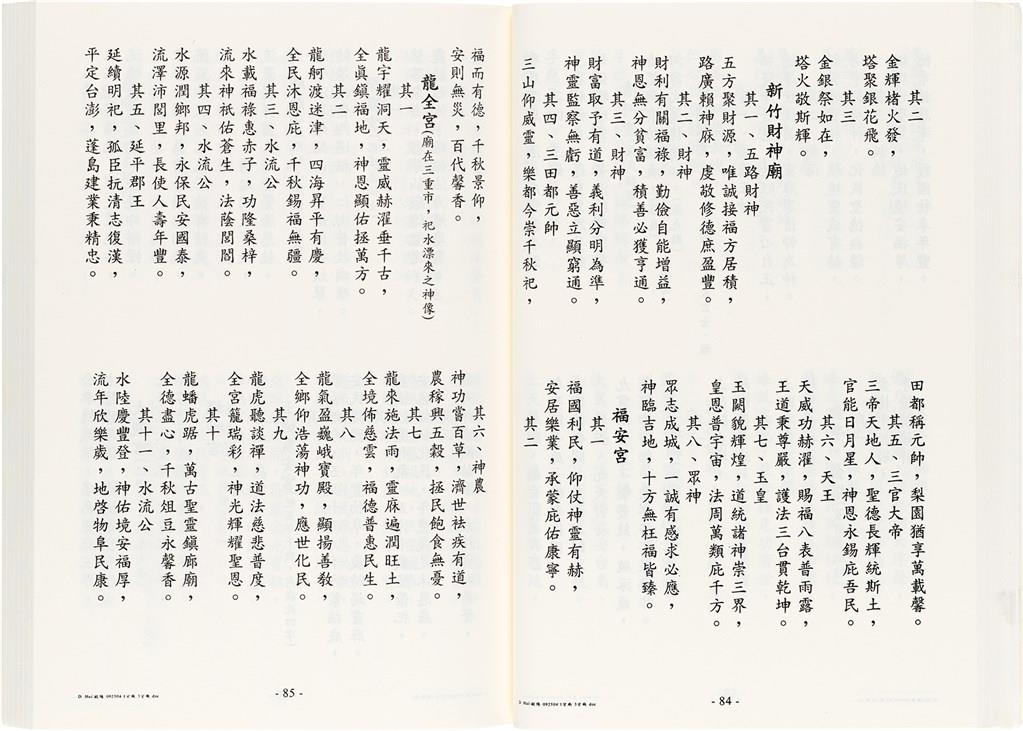 其二
金輝楮火發，
塔聚銀花飛。
其三
金銀祭如在，
塔火敬斯輝。
新竹財神廟
其一、五路財神
五方聚財源，唯誠接福方居積，
路廣賴神庥，虔敬修德庶盈豐。
其二、財神
財利有關福祿，勤儉自能增益，
神恩無分貧富，積善必獲亨通。
其三、財神
財富取予有道，義利分明為準，
神靈監察無虧，善惡立顯窮通。
其四、三田都元帥
三山仰威靈，樂都今崇千秋祀，
田都稱元帥，梨園猶享萬載馨。
其五、三官大帝
三帝天地人，聖德長輝統斯土，
官能日月星，神恩永錫庇吾民。
其六、天王
天威功赫濯，賜福八表普雨露，
王道秉尊嚴，護法三台貫乾坤。
其七、玉皇
玉闕貌輝煌，道統諸神崇三界，
皇恩普宇宙，法周萬類庇千方。
其八、眾神
眾志成城，一誠有感求必應，
神臨吉地，十方無枉福皆臻。
福安宮
其一
福國利民，仰仗神靈有赫，
安居樂業，承蒙庇佑康寧。
其二
- 84 -
福而有德，千秋景仰，
安則無災，百代馨香。
龍全宮(廟在三重市，祀水漂來之神像)
其一
龍宇耀洞天，靈威赫濯垂千古，
全眞鎭福地，神恩顯佑拯萬方。
其二
龍舸渡迷津，四海昇平有慶，
全民沐恩庇，千秋錫福無疆。
其三、水流公
水載福祿惠赤子，功隆桑梓，
流來神祇佑蒼生，法蔭閭閻。
其四、水流公
水源潤鄉邦，永保民安國泰，
流澤沛閭里，長使人壽年豐。
其五、延平郡王
延續明祀，孤臣抗清志復漢，
平定台澎，蓬島建業秉精忠。
其六、神農
神功嘗百草，濟世祛疾有道，
農稼興五穀，拯民飽食無憂。
其七
龍來施法雨，靈庥遍潤旺土，
全境佈慈雲，福德普惠民生。
其八
龍氣盈巍峨寶殿，顯揚善教，
全鄉仰浩蕩神功，應世化民。
其九
龍虎聽談禪，道法慈悲普度，
全宮籠瑞彩，神光輝耀聖恩。
其十
龍蟠虎踞，萬古聖靈鎭廊廟，
全德盡心，千秋俎豆永馨香。
其十一、水流公
水陸慶豐登，神佑境安福厚，
流年欣樂歲，地啓物阜民康。
- 85 -